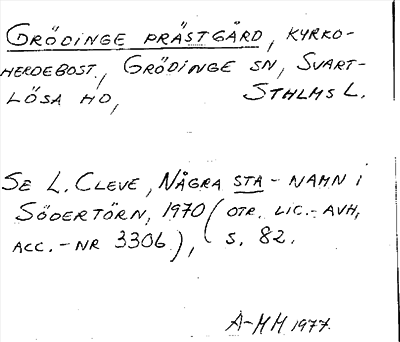 GRÖDINGE PRÄSTGÅRD, KYRKO-
HERDEBOST., GRÖDINGE SN, SVART-
LÖSA HD, STHLMS L.
SE L. CLEVE, NÅGRA STA-NAMN I
SÖDERTÖRN, 1970 (OTR. LIC.-AVH,
ACC.-NR 3306), S. 82.
A-MM 1977